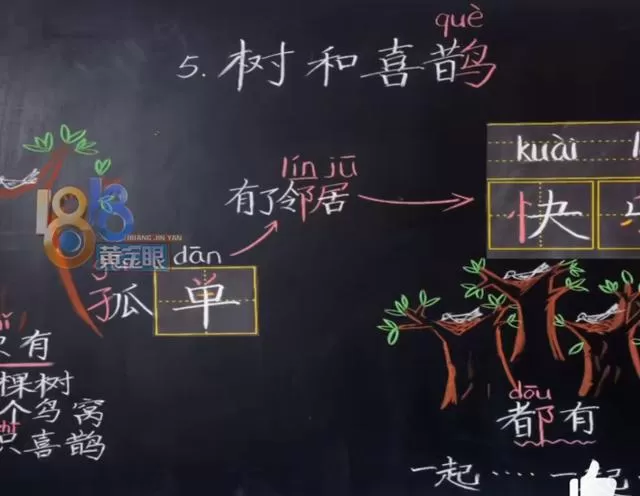 què
5. 树和喜鹊
kuài
快
lín jū
有了邻居
1818
HUANG JIN YAN
黄金眼
dān
孤单
有
棵树
个鸟窝
只喜鹊
dōu
都有
一起……一起